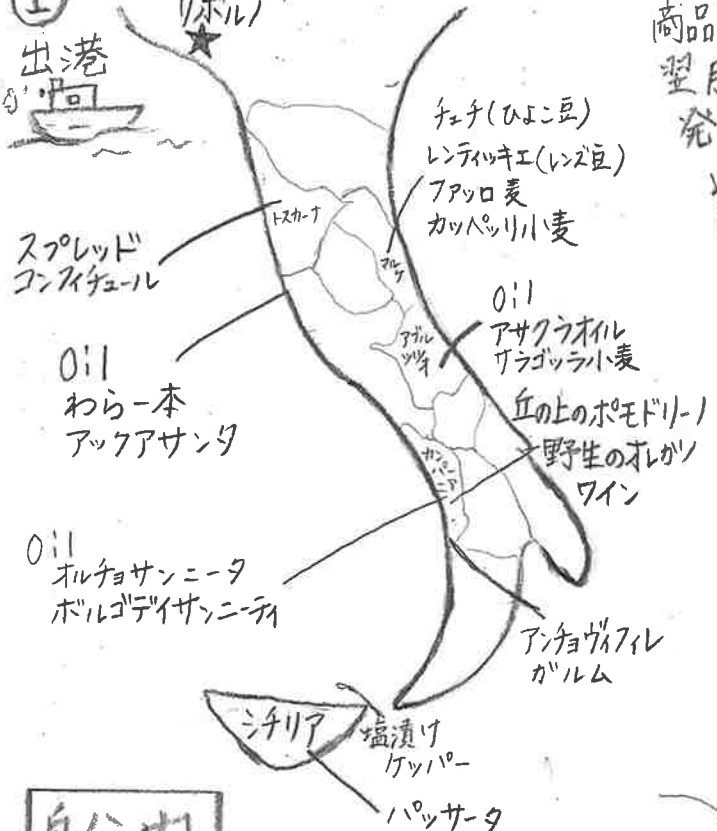 ①
リボルノ
出港
商品
翌月
発
トスカーナ
チェチ(ひよこ豆)
レンティッキエ(レンズ豆)
ファッロ麦
カッペッリ小麦
マルケ
スプレッド
コンフィチュール
Oil
アサクラオイル
サラゴッラ小麦
アブル
ッツォ
Oil
わら一本
アックアサンタ
丘の上のポモドリーノ
野生のオレガノ
ワイン
カンパーニア
Oil
オルチョサンニータ
ボルゴデイサンニーティ
アンチョヴィフィレ
ガルム
シチリア
塩漬け
ケッパー
パッサータ